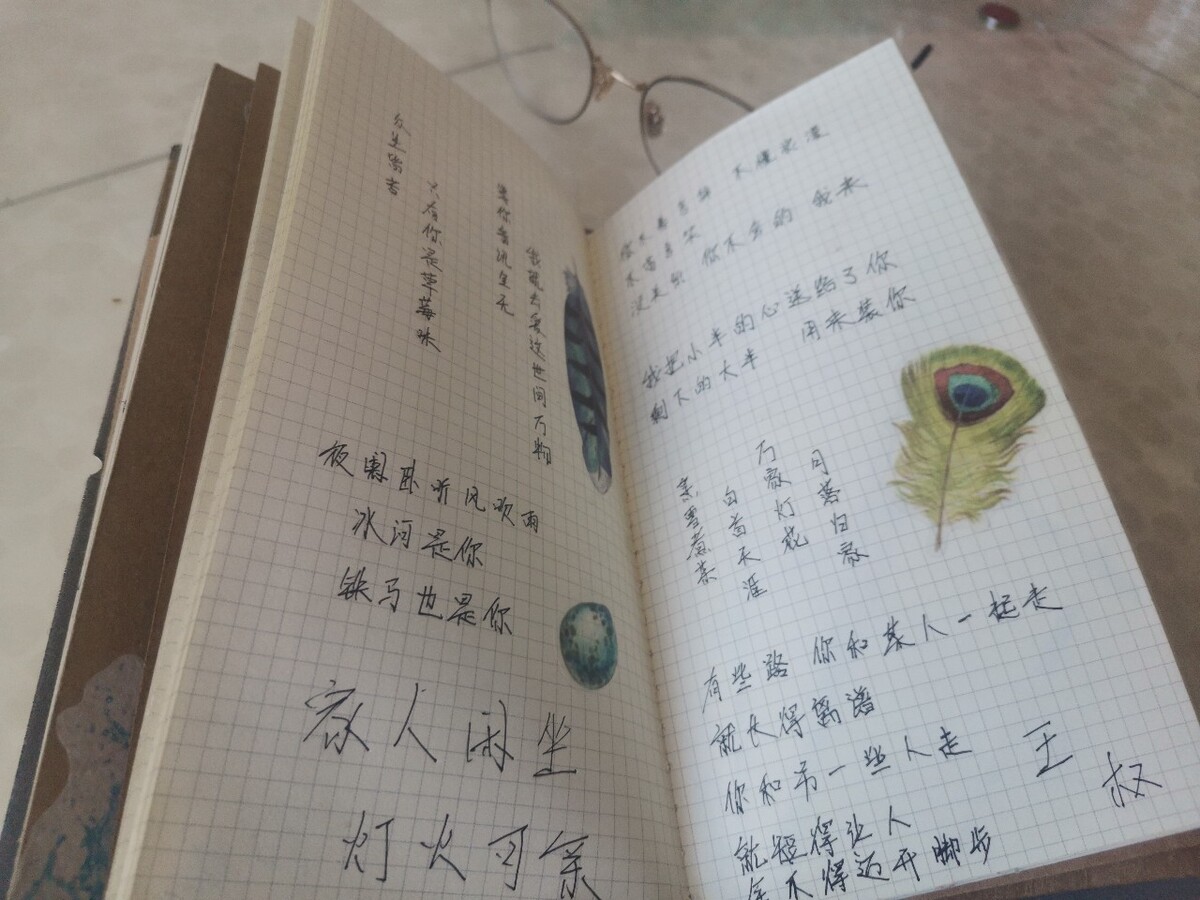 众生皆苦
只有你是草莓味
等你看
去爱这世间万物
夜阑卧听风吹雨
冰河是你
铁马也是你
家人闲坐
灯火可亲
你不善言辞 不懂浪漫
不苟言笑
没关系 你不会的 我来
我把小半的心送给了你
剩下的大半 用来装你
雪煮茶
白首天涯
万家灯花
月落归家
有些路 你和某人一起走
就长得离谱
你和另一些人走
就短得让人
舍不得迈开脚步
王叔